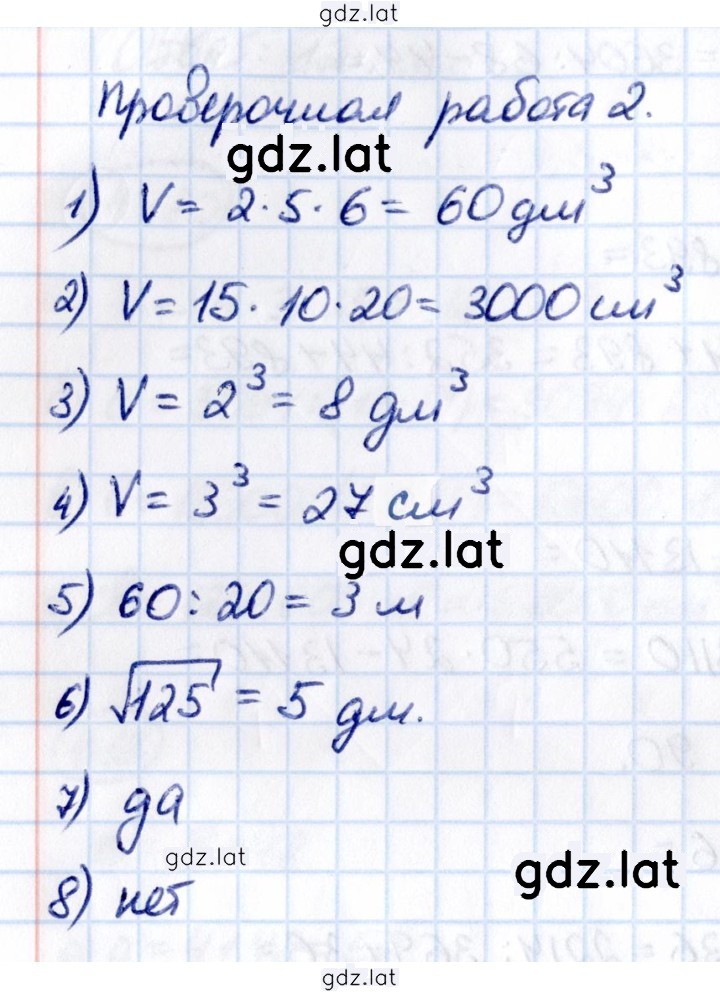 gdz.lat
Проверочная работа 2.
gdz.lat
1) V = 2·5·6 = 60 дм³
2) V = 15·10·20 = 3000 см³
3) V = 2³ = 8 дм³
4) V = 3³ = 27 см³
gdz.lat
5) 60:20 = 3 м
6) √125 = 5 дм.
7) да
gdz.lat
gdz.lat
8) нет
gdz.lat